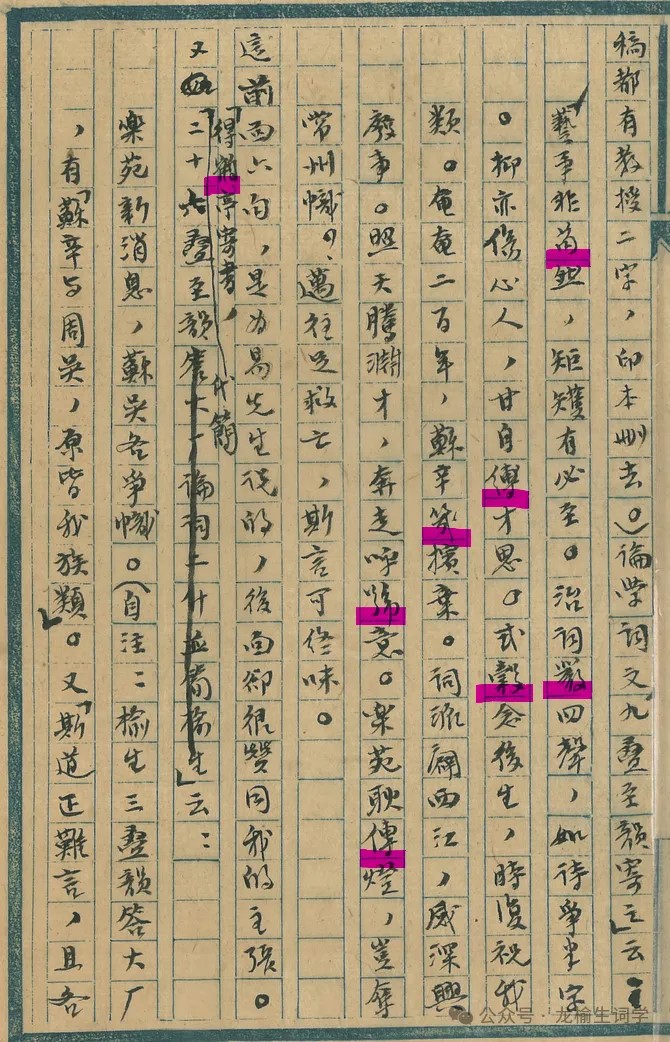 稿都有教授二字，印本刪去。）論學詞文「九疊至韻寄□」云：
「藝事非苟然，矩矱有必至。治詞嚴四聲，如待爭半字
。抑亦傷心人，甘自傅才思。式穀念後生，時復祝我
類。奄奄二百年，蘇辛等擯棄。詞派闢西江，感深興
廢事。照天騰淵才，奔走呼號意。樂苑耿傳燈，豈奪
常州幟。邁往足救亡，斯言可終味。
這前面六句，是為易先生說的，後面卻很贊同我的主張。
「得□亭寄書，代簡
又二十六疊至韻□大厂論詞二什並簡榆生」云：
樂苑新消息，蘇吳各爭幟。（自注：榆生三疊韻答大厂
，有「蘇辛與周吳，原皆我族類」。又「斯道正難言，且各
公众号·龙榆生词学